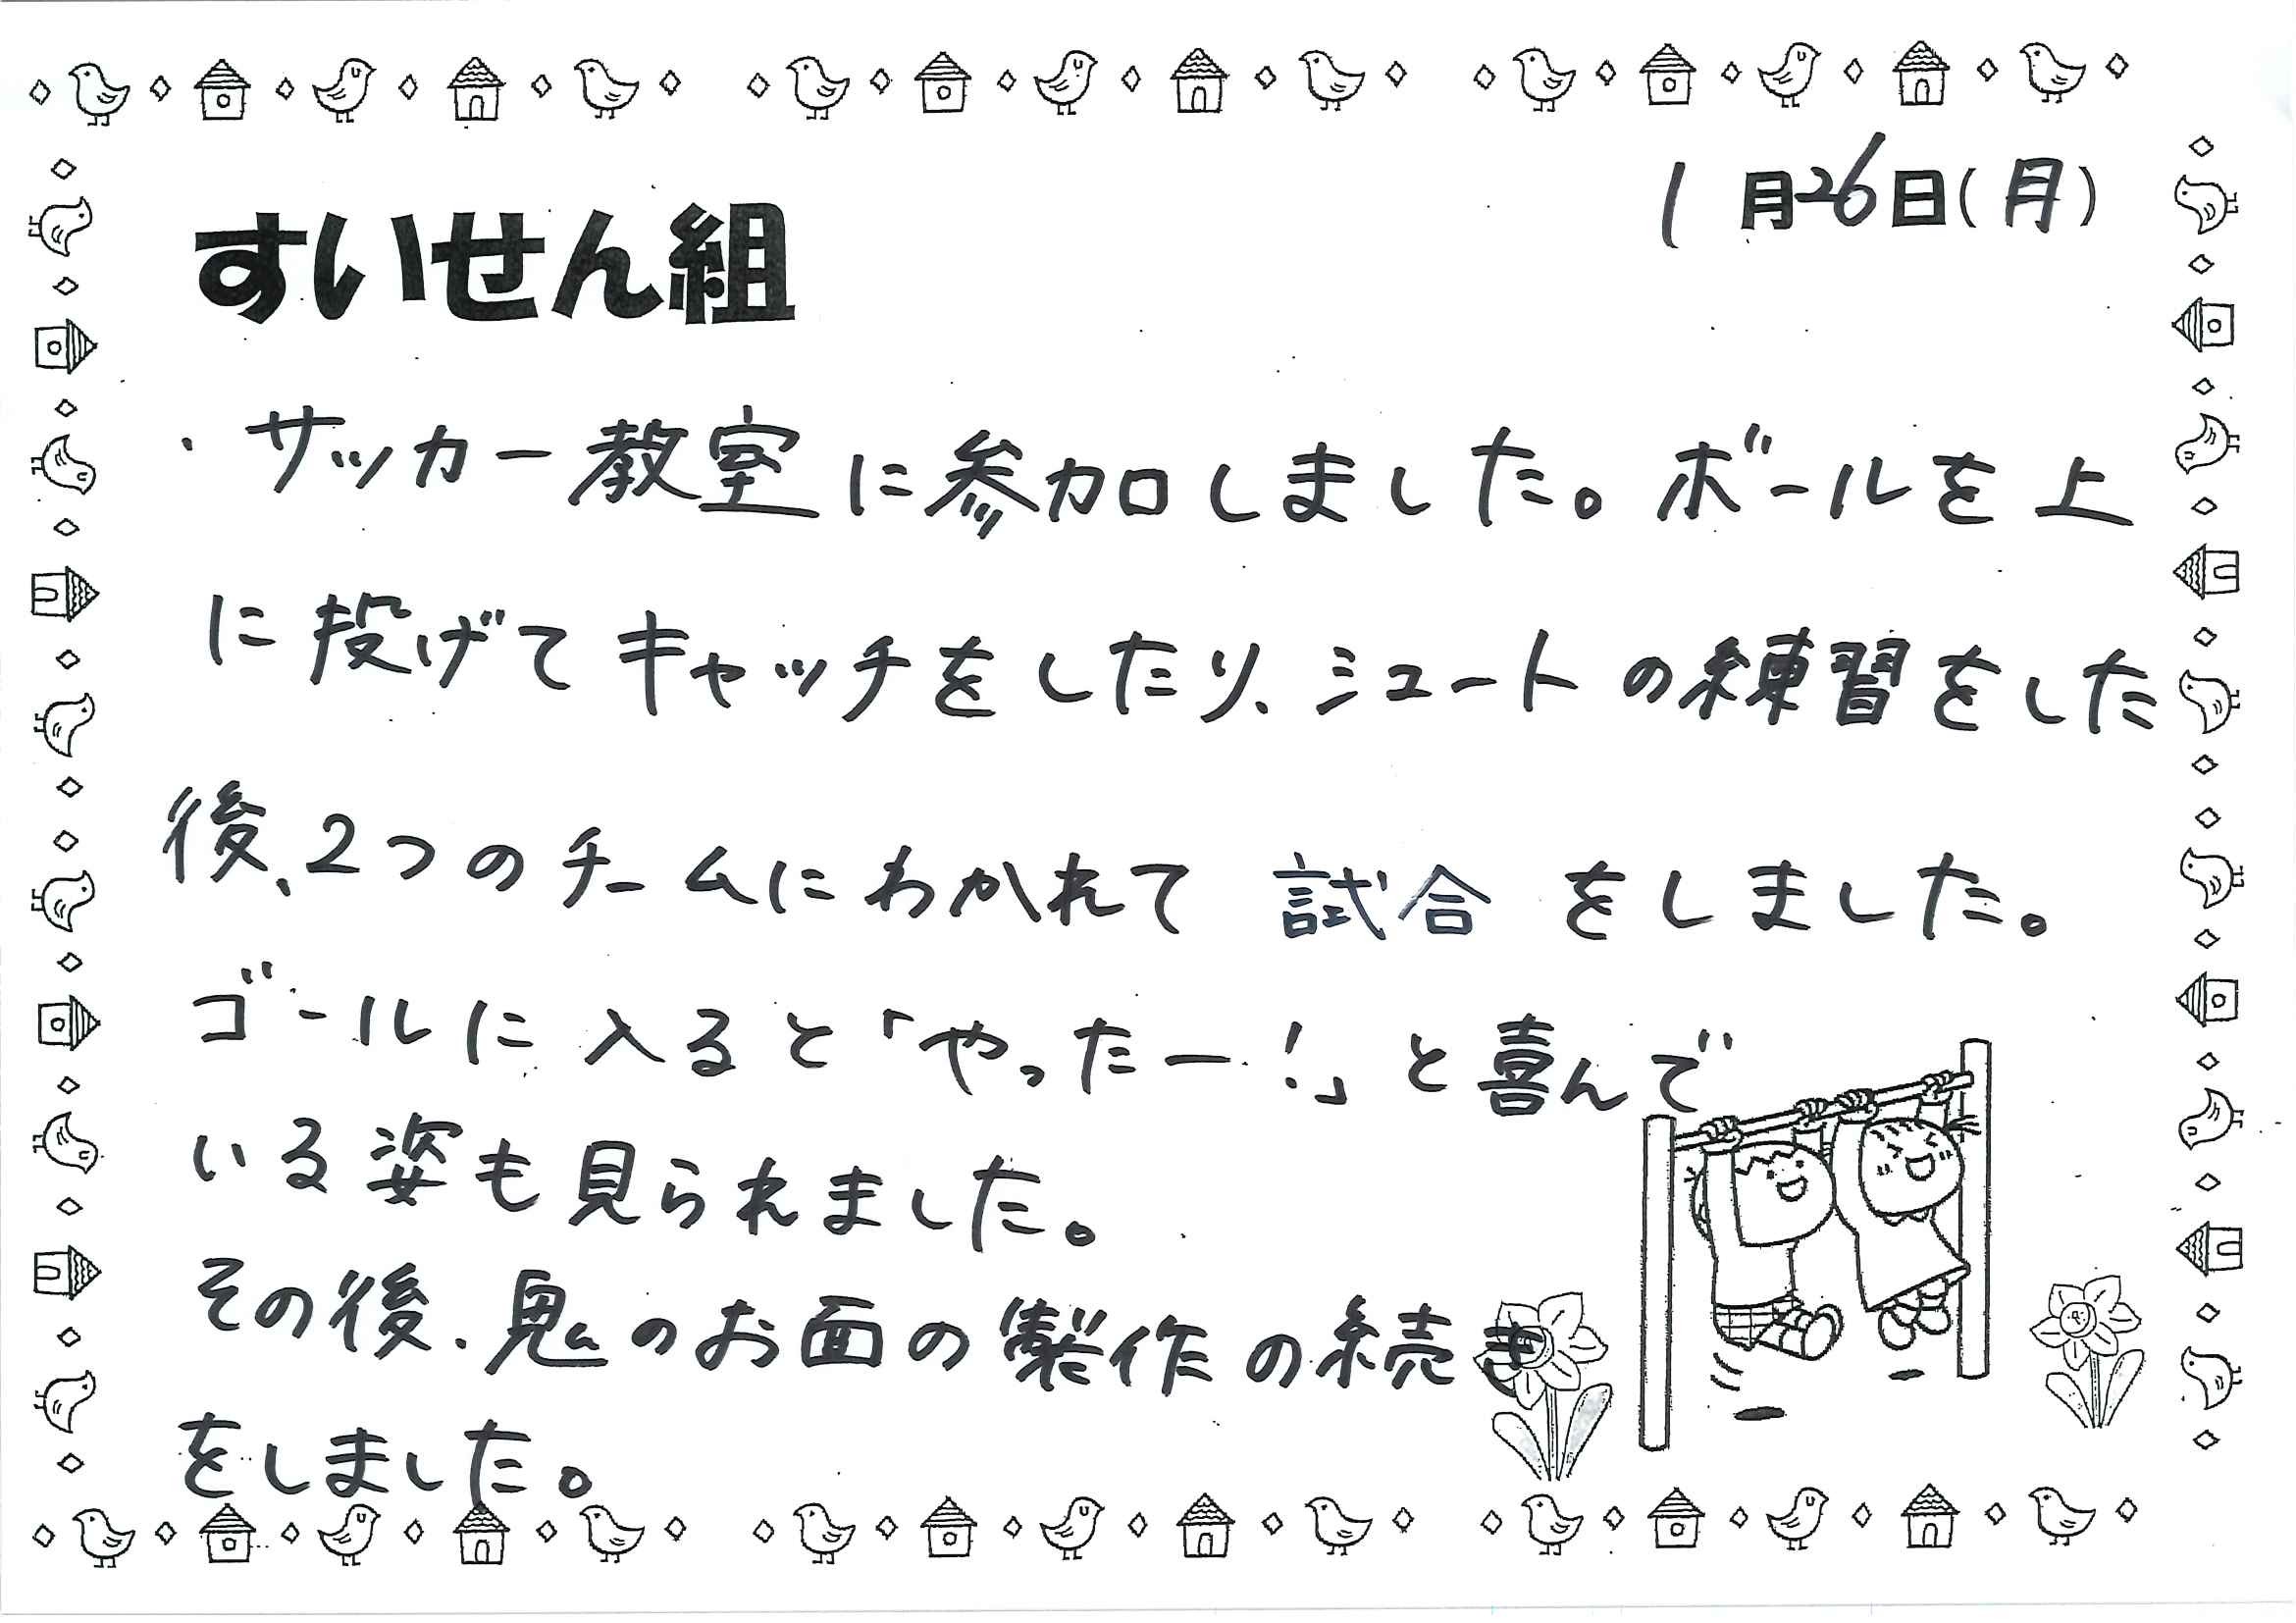 1月26日(月)
すいせん組
・サッカー教室に参加しました。ボールを上
に投げてキャッチをしたり、シュートの練習をした
後、2つのチームにわかれて試合をしました。
ゴールに入ると「やったー!」と喜んで
いる姿も見られました。
その後、鬼のお面の製作の続き
をしました。